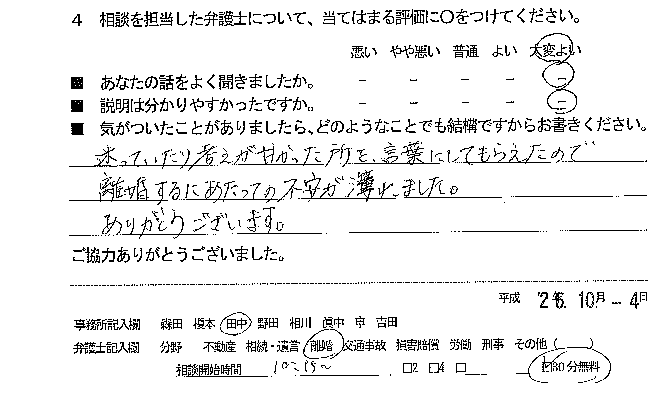 4 相談を担当した弁護士について、当てはまる評価に○をつけてください。
悪い やや悪い 普通 よい 大変よい
■ あなたの話をよく聞きましたか。 − − − − −
■ 説明は分かりやすかったですか。 − − − − −
■ 気がついたことがありましたら、どのようなことでも結構ですからお書きください。
迷っていたり考えが甘かった所を、言葉にしてもらえたので
離婚するにあたっての不安が薄れました。
ありがとうございます。
ご協力ありがとうございました。
平成 26. 10月 − 4日
事務所記入欄 森田 榎本 田中 野田 相川 眞中 京 吉田
弁護士記入欄 分野 不動産 相続・遺言 離婚 交通事故 損害賠償 労働 刑事 その他 (  )
相談開始時間 10:15~ □2 □4 □ ☑30分無料